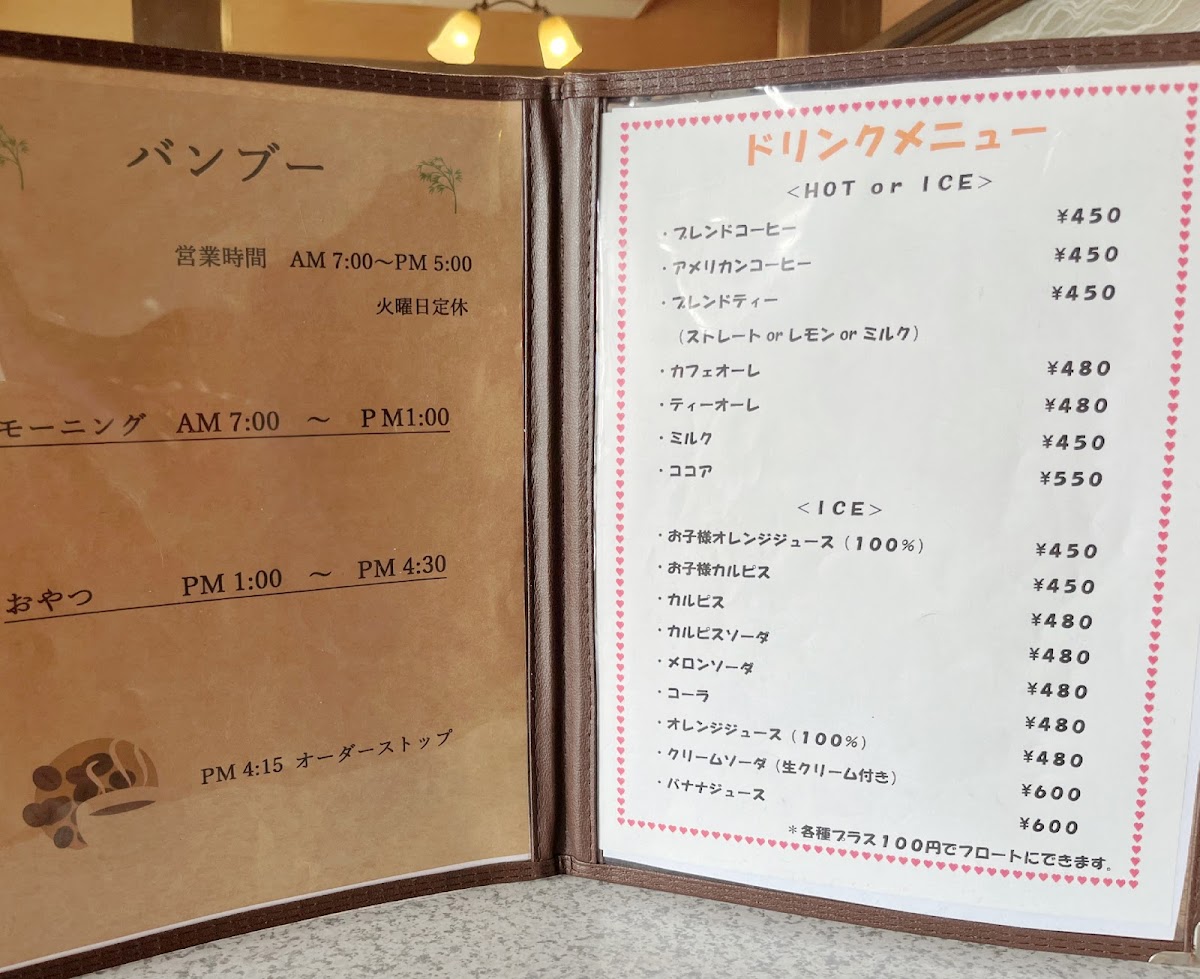 バンブー
営業時間 AM 7:00～PM 5:00
火曜日定休
モーニング AM 7:00 ～ PM1:00
おやつ PM 1:00 ～ PM 4:30
PM 4:15 オーダーストップ
ドリンクメニュー
＜HOT or ICE＞
・ブレンドコーヒー ¥450
・アメリカンコーヒー ¥450
・ブレンドティー ¥450
（ストレート or レモン or ミルク）
・カフェオーレ ¥480
・ティーオーレ ¥480
・ミルク ¥450
・ココア ¥550
＜ICE＞
・お子様オレンジジュース（100%） ¥450
・お子様カルピス ¥450
・カルピス ¥480
・カルピスソーダ ¥480
・メロンソーダ ¥480
・コーラ ¥480
・オレンジジュース（100%） ¥480
・クリームソーダ（生クリーム付き） ¥600
・バナナジュース ¥600
＊各種プラス100円でフロートにできます。